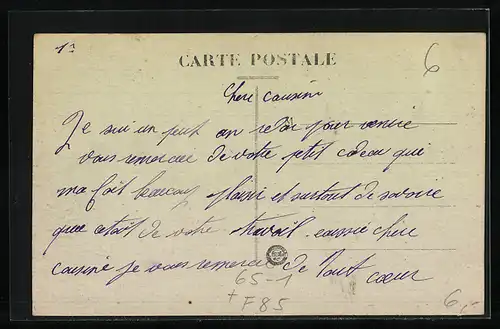 13
CARTE POSTALE
6
Chere cousine
Je sui un peut en retar pour venire
vous remercie de votre ptit cadeau que
ma fait beaucoup plaisir et surtout de savoire
que cetait de votre travail aussie chere
cousine je vous remercie de tout cœur
65-1
+ F85
6,-